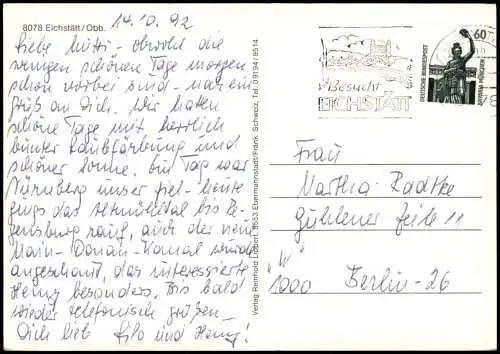 8078 Eichstätt/Obb.
14.10.92
Liebe Mutti - obwohl die
wenigen schönen Tage morgen
schon vorbei sind - mal ein
gruß an Dich. Wir hatten
schöne Tage mit herrlich
bunter Laubfärbung und
schöner Sonne. Ein Tag war
Nürnberg unser Ziel - heute
gings das Altmühltal bis Re-
gensburg rauf, auch der neue
Main-Donau-Kanal wurde
angeschaut, das interessierte
Henry besonders. Bis bald
wieder telefonisch grüßen
Dich lieb Lilo und Henry!
Verlag Reinhold Lubert, 8553 Ebermannstadt/Fränk. Schweiz, Tel. 09194/8514
Besucht
EICHSTÄTT
60
DEUTSCHE BUNDESPOST
Frau
Martha Radtke
Gühlener Zeile 11
"W"
1000 Berlin-26